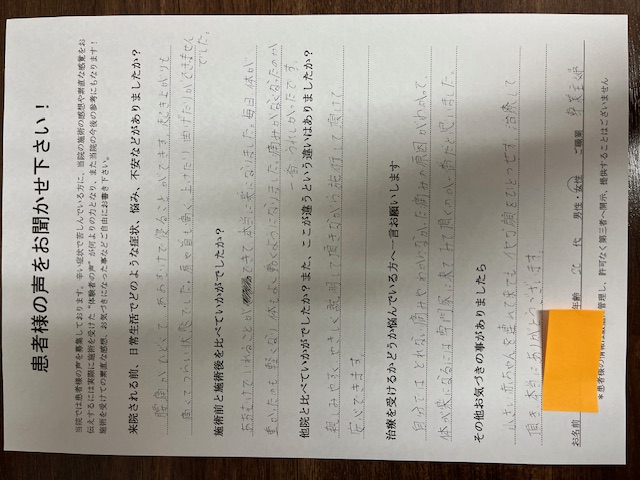 患者様の声をお聞かせ下さい！
当院では患者様の声を募集しております。辛い症状で苦しんでいる方に、当院の施術の感想や素直な感覚をお
伝えするには実際に施術を受けた“体験者の声”が何よりの力となり、また当院の今後の参考にもなります！
施術を受けての素直な感想、お気づきになった事などご自由にお書き下さい。
来院される前、日常生活でどのような症状、悩み、不安などがありましたか？
腰痛がひどくて、あおむけで寝ることができず、起き上がりも
痛くてつらい状態でした。肩や首も痛く上げたり曲げたりができません
でした。
施術前と施術後を比べていかがでしたか？
あおむけでいれることができて本当に楽になりました。毎日体が
重かったのも軽くなり体もよく動くようになりました。痛みがなくなったのが
一番うれしかったです。
他院と比べていかがでしたか？また、ここが違うという違いはありましたか？
親しみやすくやさしく説明して頂きながら施術して受けて
応べてきます。
治療を受けるかどうか悩んでいる方へ一言お願いします
自分ではとれない痛みやわからなかった痛みの原因がわかって、
体が楽になるには専門家に来てみて頂くのが一番だと思いました。
その他お気づきの事がありましたら
小さい赤ちゃんを連れて来ても嫌な顔をひとつせず、治療して
頂き本当にありがとうございます。
お名前 年齢 代 男性・女性 ご職業 専業主婦
＊患者様の情報は 管理し、許可なく第三者へ開示、提供することはございません